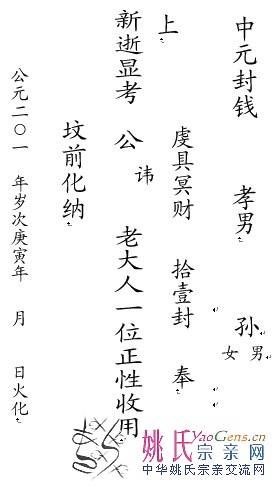 中元封钱 孝男 孙 男
女
虔具冥财 拾壹封 奉
上
新逝显考 公 讳 老大人一位正性收用
坟前化纳
公元二〇一 年岁次庚寅年 月 日火化
YaoGens.cn
姚氏宗亲网
中华姚氏宗亲交流网